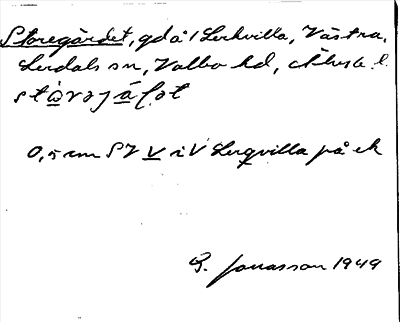 Storegärdet, gd å 1 Lerkvilla, Västra,
Lerdals sn, Valbo hd, Älvsb. l.
0,5 cm SV V i V Lerqvilla på ek
G. Jonasson 1949